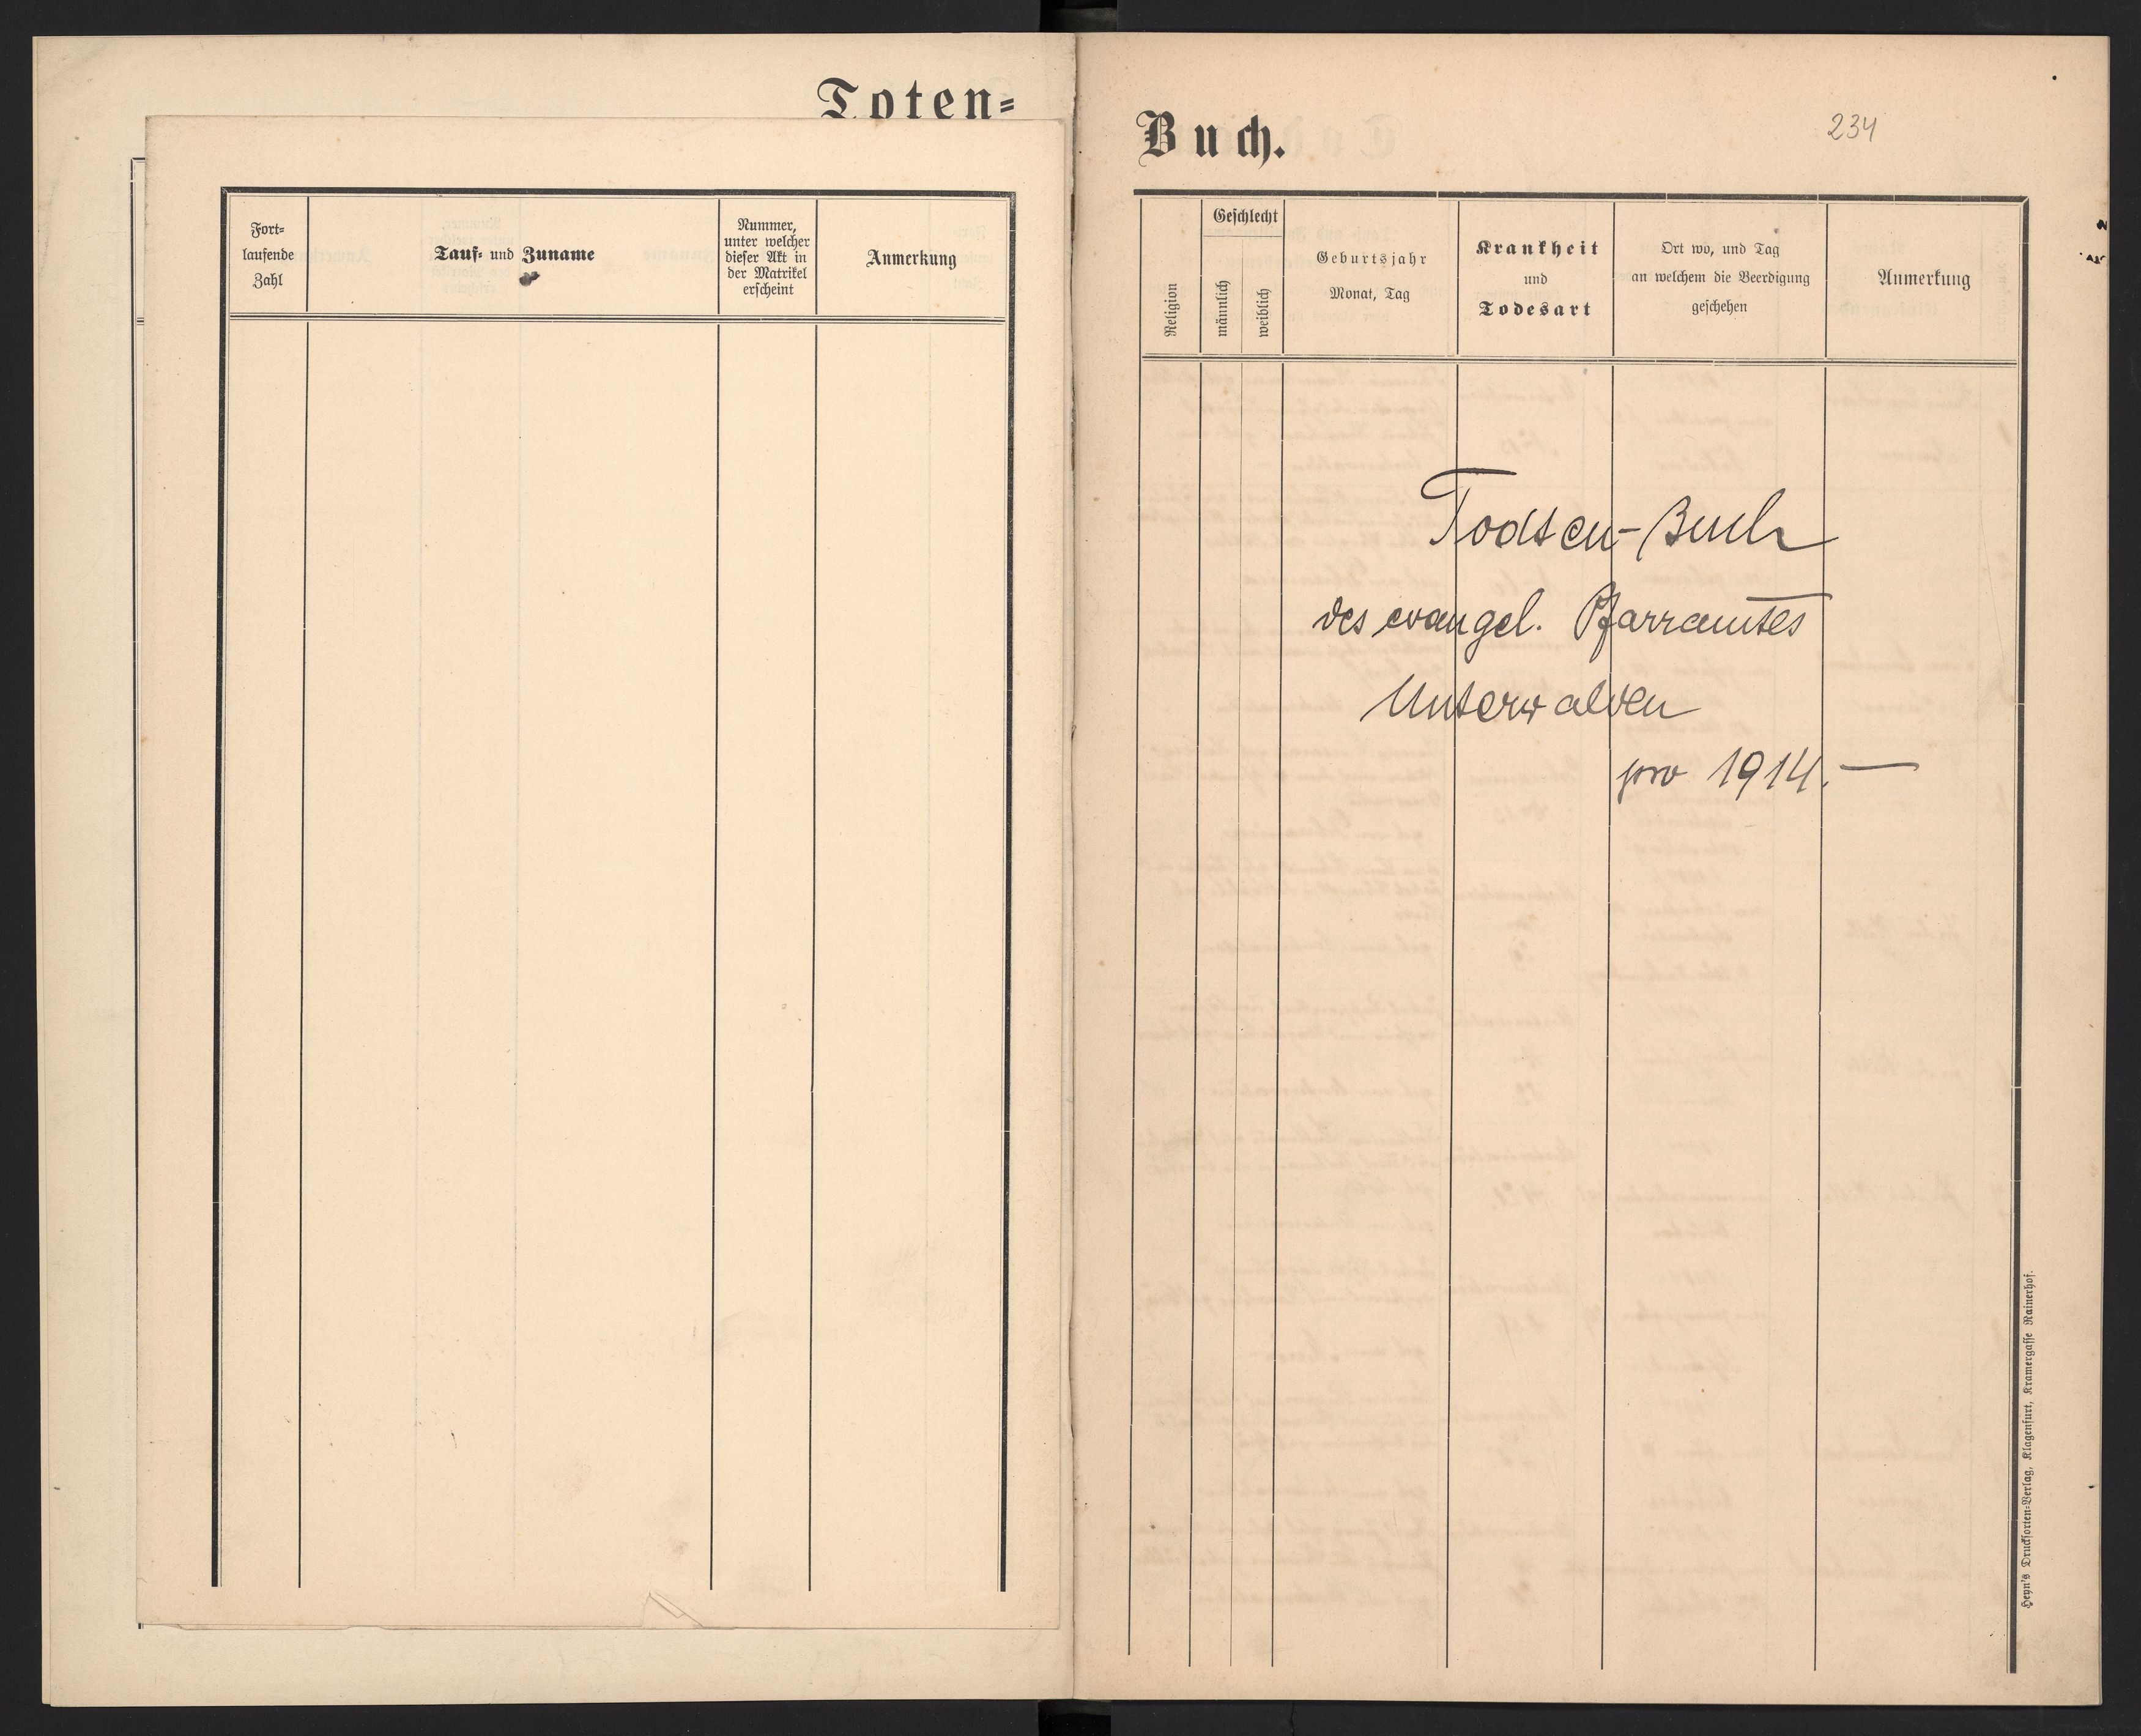 Toten=
Fort=
laufende
Zahl
Tauf= und Zuname
Nummer,
unter welcher
dieser Akt in
der Matrikel
erscheint
Anmerkung
Buch.
234
Religion
Geschlecht
männlich
weiblich
Geburtsjahr
Monat, Tag
Krankheit
und
Todesart
Ort wo, und Tag
an welchem die Beerdigung
geschehen
Anmerkung
Todten-Buch
des evangel. Pfarramtes
Unterwalden
pro 1914.—
Heyn's Drucksorten=Verlag, Klagenfurt, Kramergasse Rainerhof.